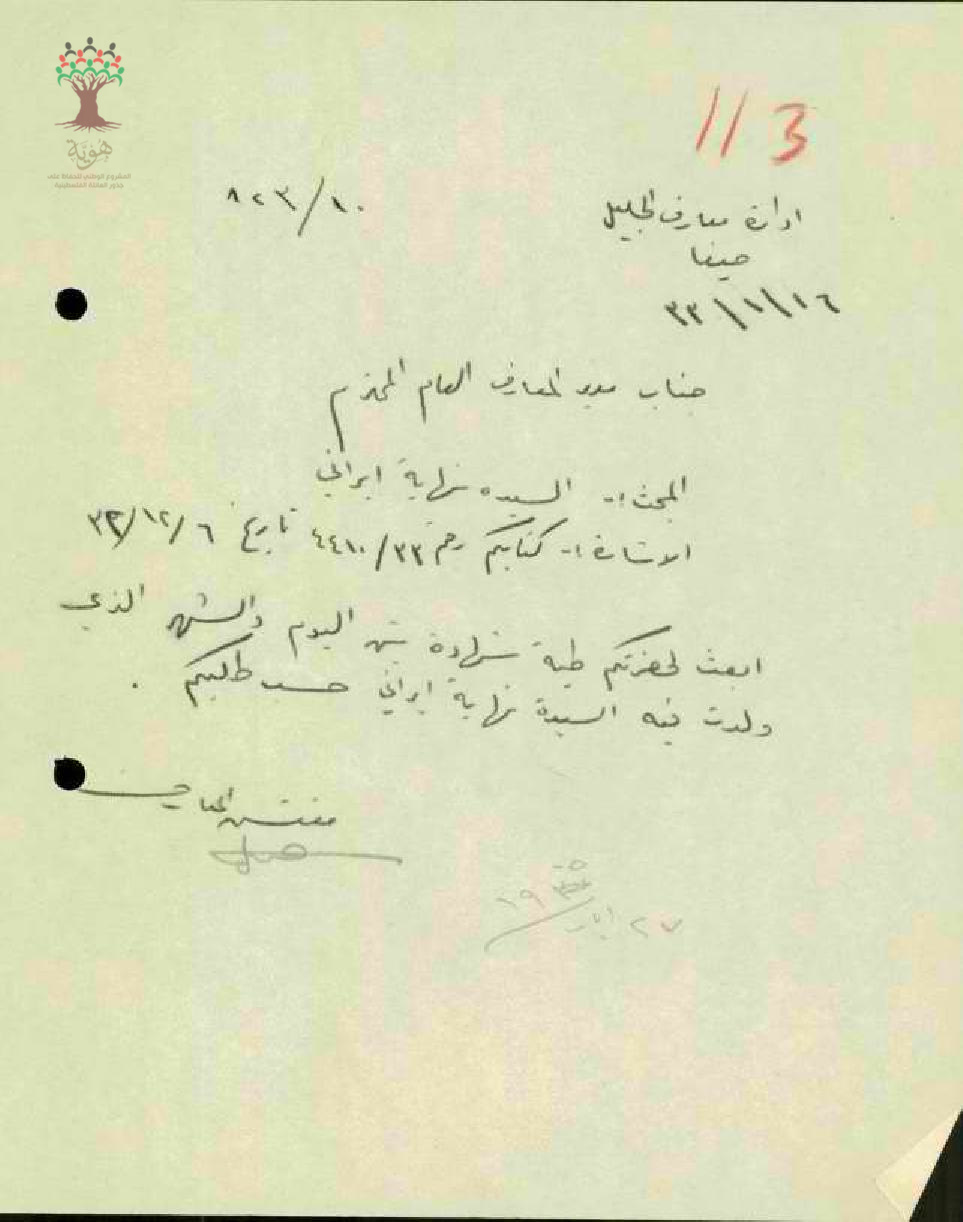 هوية
المشروع الوطني للحفاظ على
جذور العائلة الفلسطينية
113
ادارة معارف الجليل
٨٢٣/١٠
حيفا
٣٣/١/١٦
جناب مدير المعارف العام المحترم
المبحث :- السيده نهاية ايراني
الاشارة :- كتابكم رقم ٤٤١٠/٣٣ تاريخ ٣٢/١٢/٦
ابعث لحضرتكم طيه شهادة تبين اليوم والشهر الذي
ولدت فيه السيدة نهاية ايراني حسب طلبكم .
مفتش المعارف
٢٧ ايار ١٩